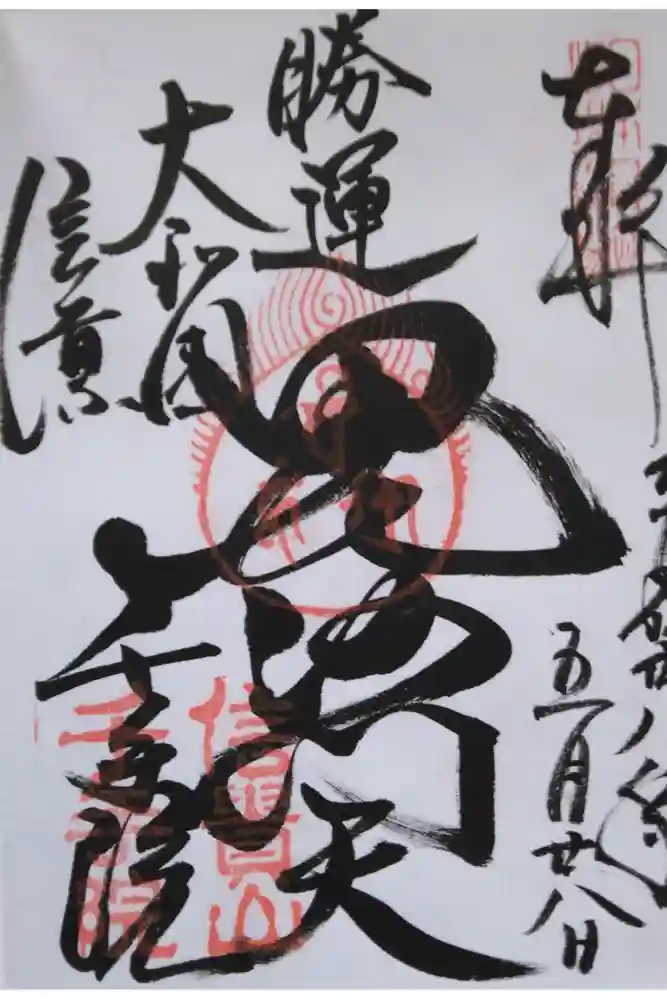 奉拝
五月廿八日
勝運
毘沙門天
大和国
信貴
千手院
信貴山
千手院